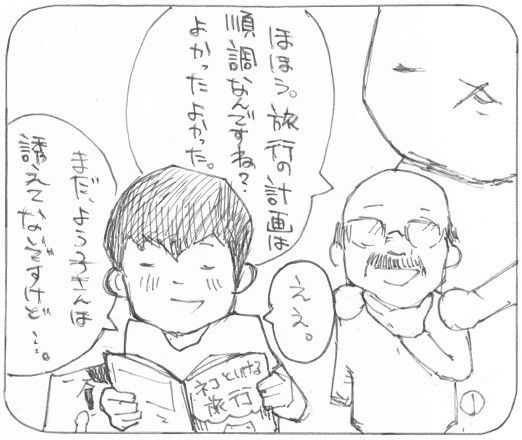 ほほう。旅行の計画は
順調なんですね?
よかったよかった。
ええ。
まだ、よう子さんは
誘えてないですけど…。
ネコといける
旅行